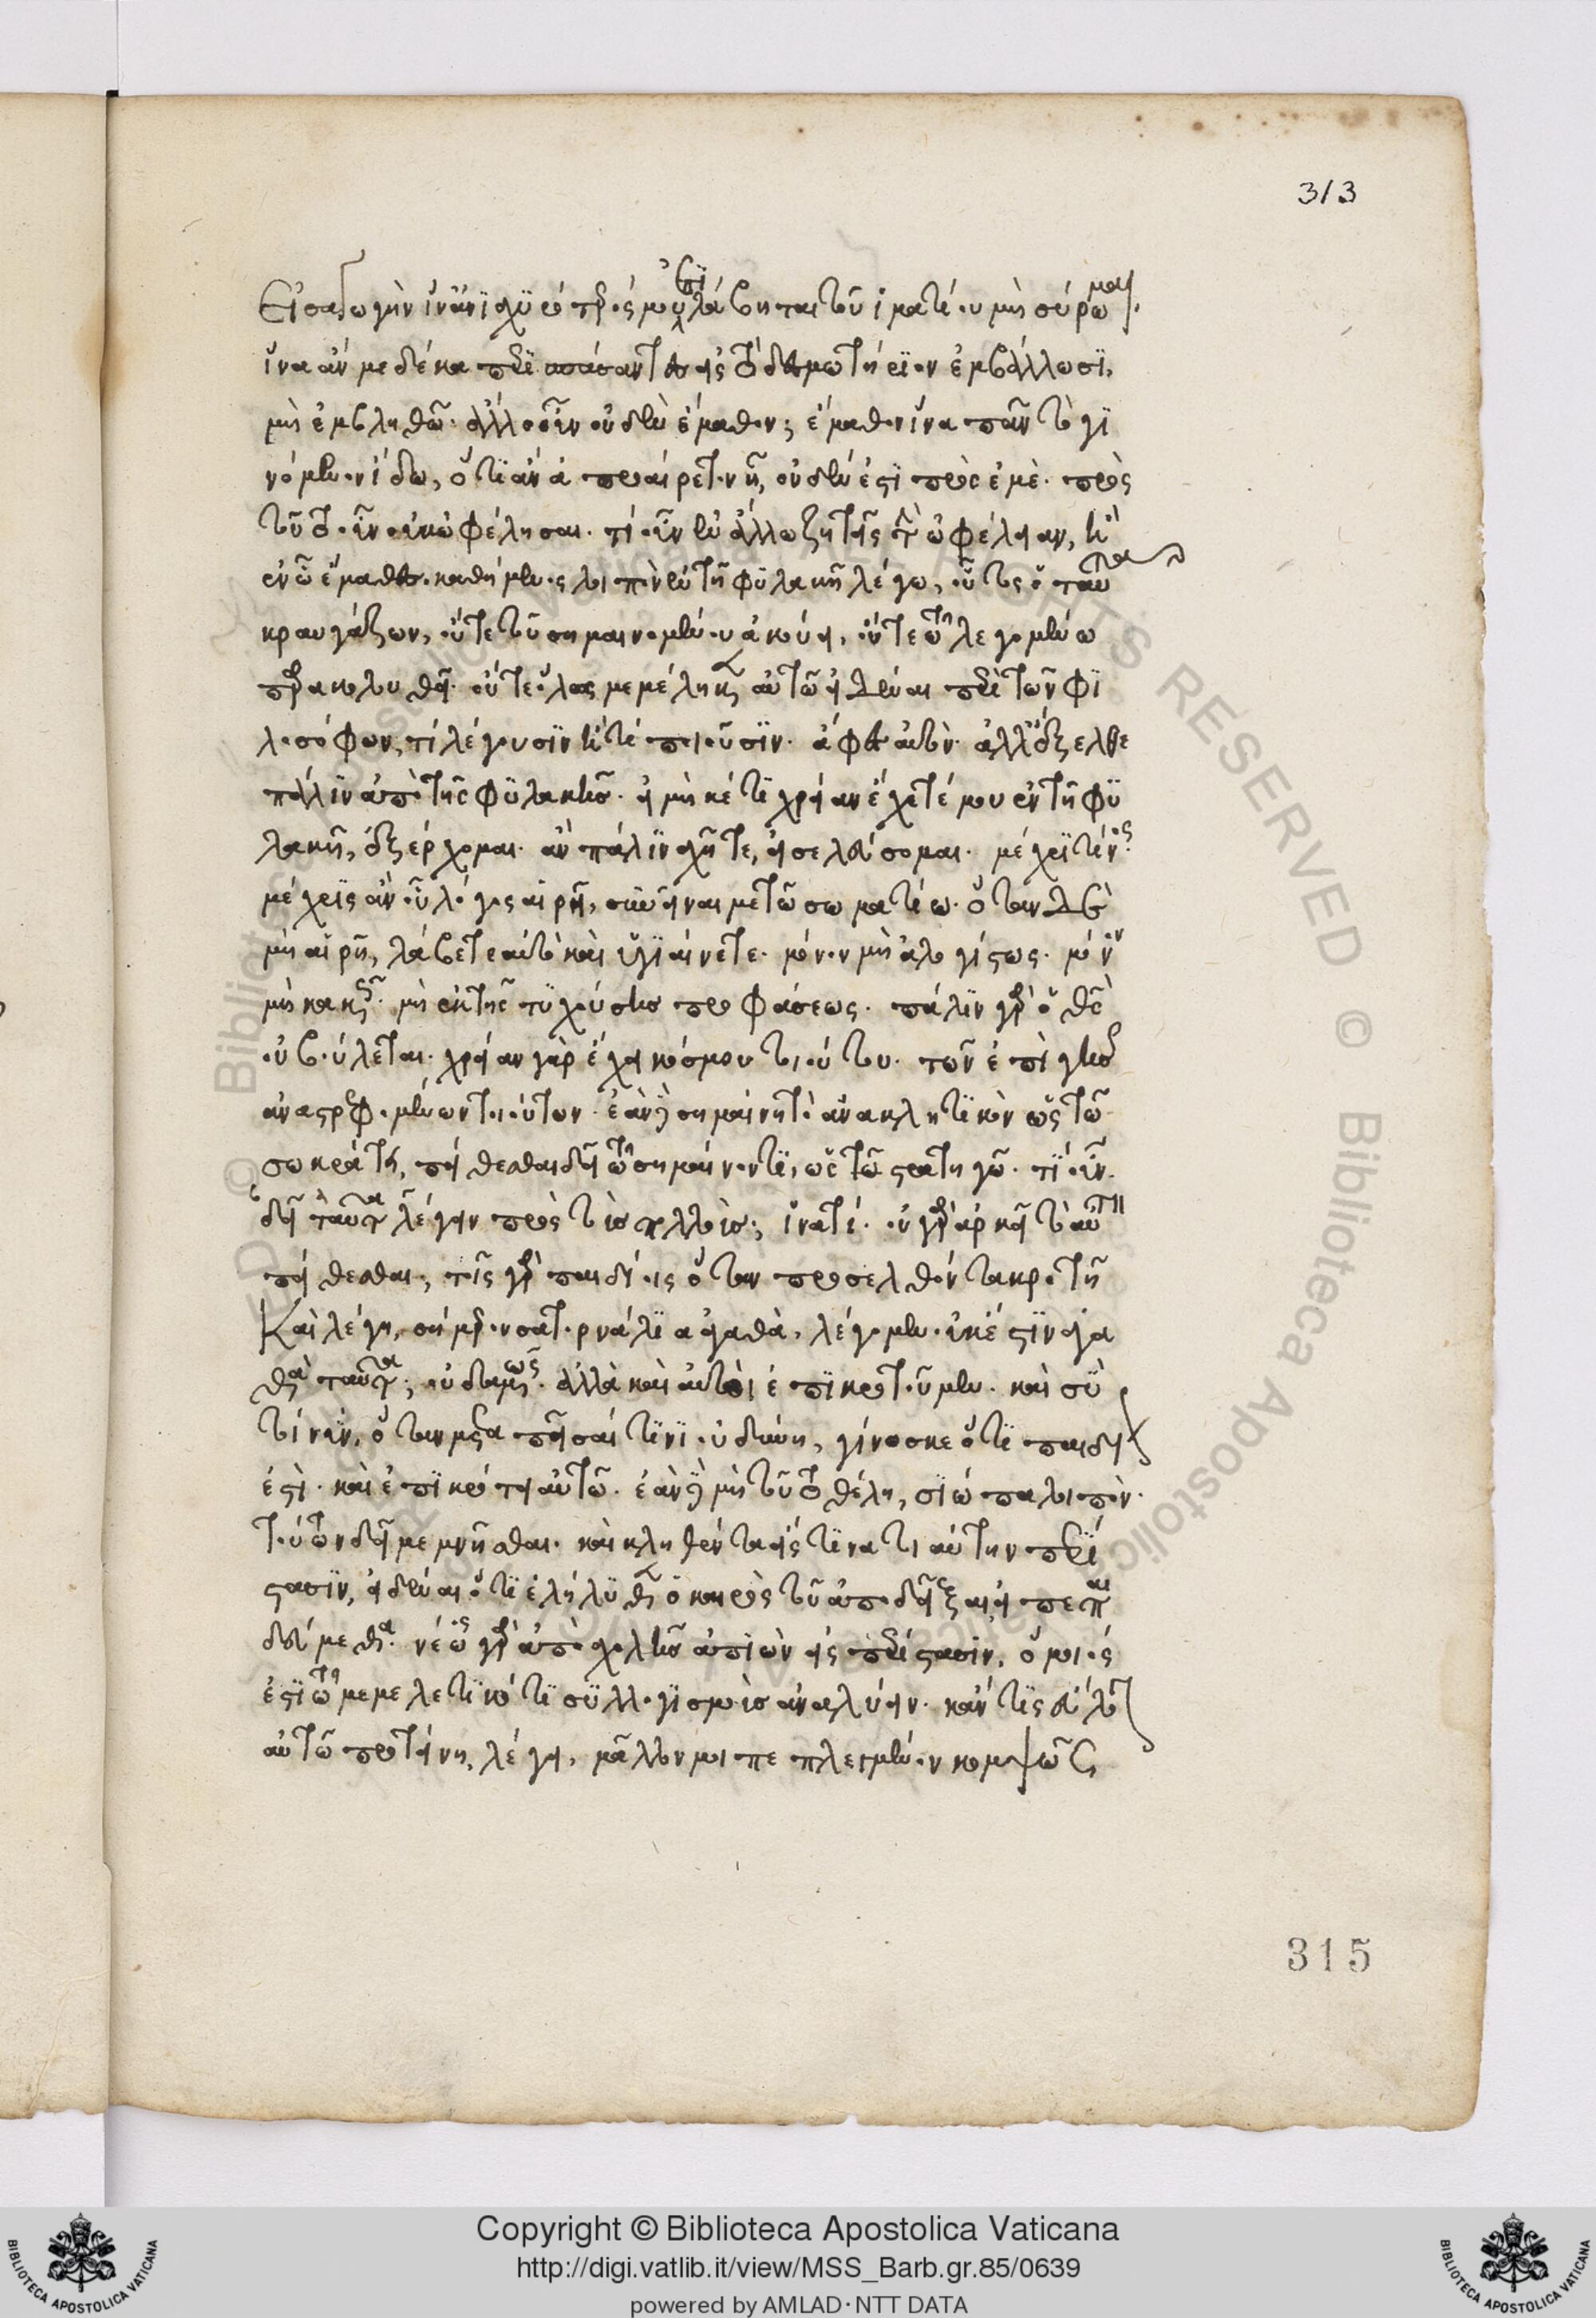 313
Εἰσαγωγὴν ἵν' ἂν ἰσχυρότερός μου ἐπιλάβηται τοῦ ἱματίου μὴ σύρωμαι.
ἵνα ἄν με δέκα περισπάσαντες εἰς τὸ δεσμωτήριον ἐμβάλλωσι,
μὴ ἐμβληθῶ. ἄλλο οὖν οὐδὲν ἔμαθον; ἔμαθον ἵνα πᾶν τὸ γι
νόμενον ἴδω, ὅτι ἂν ἀπροαίρετον ᾖ, οὐδέν ἐστι πρὸς ἐμὲ. πρὸς
τοῦτο οὖν οὐκ ὠφέλησαι. τί οὖν ἐν ἄλλω ζητεῖς τὴν ὠφέλειαν, ἢ
ἐν ὧ ἔμαθες. καθήμενος λοιπὸν ἐν τῆ φυλακῆ λέγω, οὗτος ὁ ταῦτα
κραυγάζων, οὔτε τοῦ σημαινομένου ἀκούει, οὔτε τῶ λεγομένω
παρακολουθεῖ. οὔτε ὅλως μεμέληκεν αὐτῶ εἰδέναι περὶ τῶν φι
λοσόφων, τί λέγουσιν ἢ τί ποιοῦσιν. ἄφες αὐτὸν. ἀλλ' ἔξελθε
πάλιν ἀπὸ τῆς φυλακῆς. εἰ μηκέτι χρείαν ἔχετέ μου ἐν τῆ φυ
λακῆ, ἐξέρχομαι. ἂν πάλιν σχῆτε, εἰσελεύσομαι. μέχρι τίνος·
μέχρις ἂν οὗ λόγος αἱρῆ, συνεῖναί με τῶ σωματίω. ὅταν δὲ
μὴ αἱρῆ, λάβετε αὐτὸ καὶ ὑγιαίνετε. μόνον μὴ ἀλογίστως. μόνον
μὴ κακῶς. μὴ ἐκ τῆς τυχούσης προφάσεως. πάλιν γὰρ ὁ θεὸς
οὐ βούλεται. χρείαν γὰρ ἔχει κόσμου τοιούτου. τῶν ἐπὶ γῆς
ἀναστρεφομένων τοιούτων. ἐὰν δὲ σημαίνη τὸ ἀνακλητικὸν ὡς τῶ
σωκράτει, πείθεσθαι δεῖ τῶ σημαίνοντι, ὡς τῶ στρατηγῶ. τί οὖν
δεῖ ταῦτα λέγειν πρὸς τοὺς πολλοὺς; ἵνα τί. οὐ γὰρ ἀρκεῖ τὸ αὐτὸν
πείθεσθαι; τοῖς γὰρ παιδίοις ὅταν προσελθόντα κροτῆ
Καὶ λέγη, σήμερον σατορνάλια ἀγαθὰ, λέγομεν. οὐκ ἔστιν ἀγα
θὰ ταῦτα; οὐδαμῶς. ἀλλὰ καὶ αὐτοὶ ἐπικροτοῦμεν. καὶ σὺ
τοίνυν, ὅταν μεταπεῖσαί τινα οὐ δύνη, γίνωσκε ὅτι παιδίον
ἐστὶ. καὶ ἐπικρότει αὐτῶ. ἐὰν δὲ μὴ τοῦτο θέλης, σιώπα λοιπὸν.
τούτων δεῖ μεμνῆσθαι. καὶ κληθέντα εἴς τινα τοιαύτην περί
στασιν, εἰδέναι ὅτι ἐλήλυθεν ὁ καιρὸς τοῦ ἀποδεῖξαι εἰ πεπαι
δεύμεθα. νέος γὰρ ἀπὸ σχολῆς ἀπιὼν εἰς περίστασιν, ὅμοιός
ἐστι τῶ μεμελετηκότι συλλογισμοὺς ἀναλύειν. κἄν τις εὔλυτον
αὐτῶ προτείνη, λέγει, μᾶλλόν μοι πεπλεγμένον κομψῶς
315
Copyright © Biblioteca Apostolica Vaticana
http://digi.vatlib.it/view/MSS_Barb.gr.85/0639
powered by AMLAD · NTT DATA